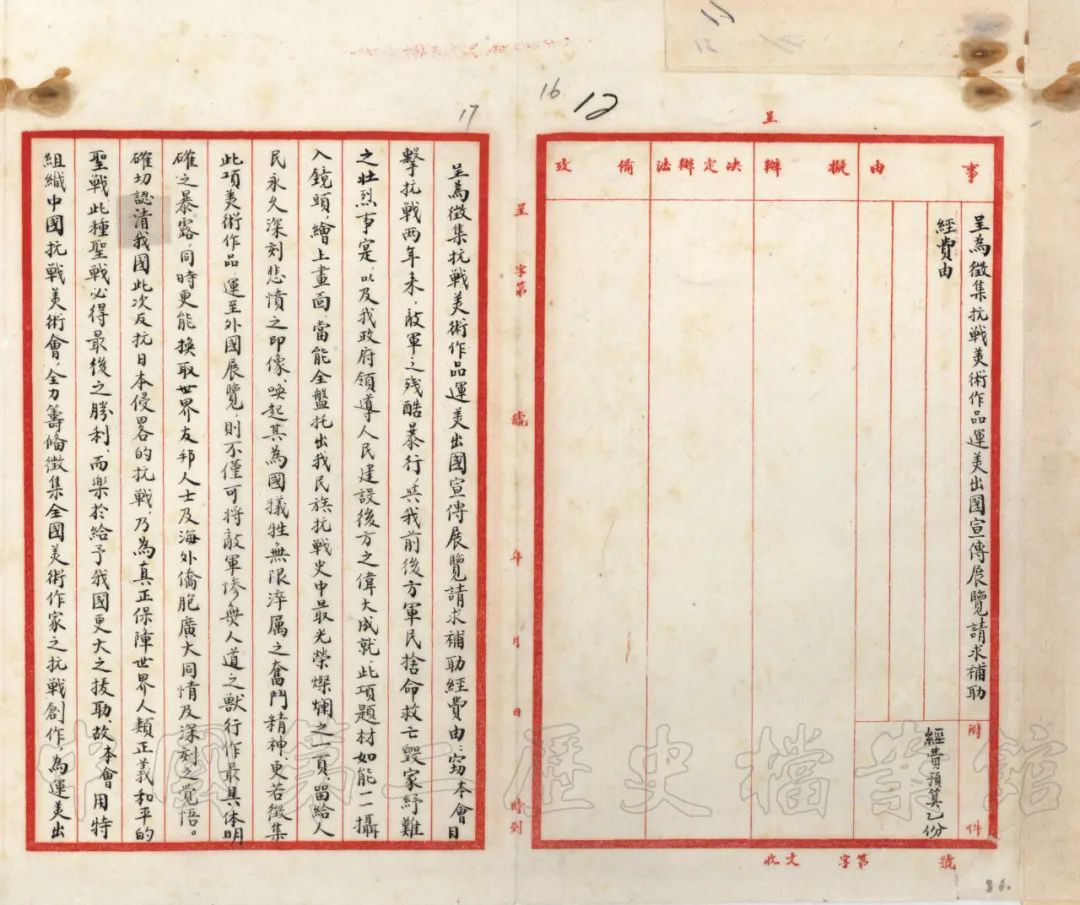 呈
事由
擬辦
決定辦法
備攷
呈為徵集抗戰美術作品運美出國宣傳展覽請求補助
經費由
附件
經費預算乙份
收文 字第 號
呈 字第 號 年 月 日 時到
16
12
17
86.
呈為徵集抗戰美術作品運美出國宣傳展覽請求補助經費由：竊本會目
擊抗戰兩年來，敵軍之殘酷暴行與我前後方軍民捨命救亡毀家紓難
之壯烈事寔以及我政府領導人民建設後方之偉大成就，此項題材如能一一攝
入鏡頭，繪上畫面，當能全盤托出我民族抗戰史中最光榮燦爛之一頁，留給人
民永久深刻悲憤之印像，喚起其為國犧牲，無限淬厲之奮鬥精神，更若徵集
此項美術作品，運至外國展覽，則不僅可將敵軍慘無人道之獸行作最具体明
確之暴露，同時更能換取世界友邦人士及海外僑胞廣大同情及深刻之覺悟。
確切認清我國此次反抗日本侵畧的抗戰，乃為真正保障世界人類正義和平的
聖戰，此種聖戰必得最後之勝利，而樂於給予我國更大之援助，故本會用特
組織中國抗戰美術會，全力籌備徵集全國美術作家之抗戰創作，為運美出
中國第二歷史檔案館